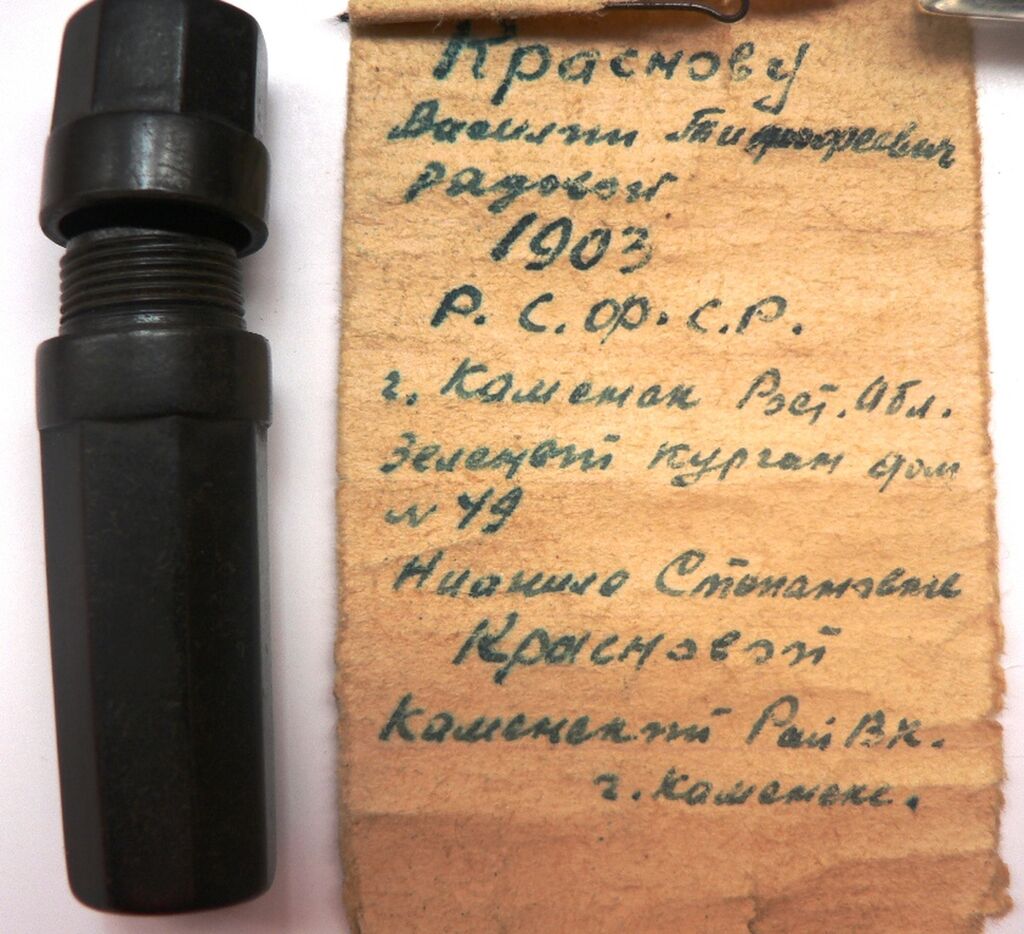 Краснову
Василий Тимофеевич
радовой
1903
Р. С. Ф. С. Р.
г. Каменск Рост. Обл.
Зеленой курган дом
№ 49
Степановне
Красновой
Каменский Рай ВК.
г. Каменске.